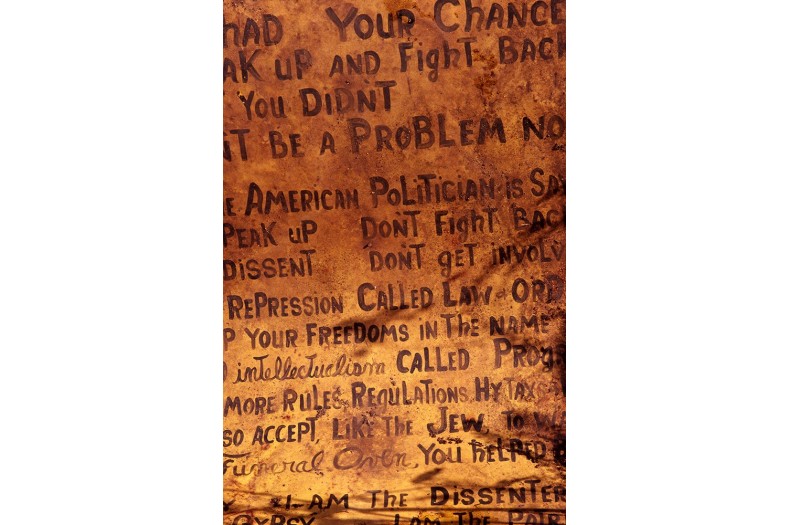 HAD YOUR CHANCE
AK UP AND FIGHT BACK
YOU DIDNT
NT BE A PROBLEM NO
E AMERICAN POLITICIAN IS SAY
PEAK UP DONT FIGHT BACK
DISSENT DONT GET INVOLV
REPRESSION CALLED LAW + ORD
P YOUR FREEDOMS IN THE NAME
intellectualism CALLED PROG
MORE RULES, REGULATIONS, HY TAXS
SO ACCEPT, LIKE THE JEW, TO W
Funeral Oven, YOU HELPED
I-AM THE DISSENTER
GYPSY I AM THE PATR